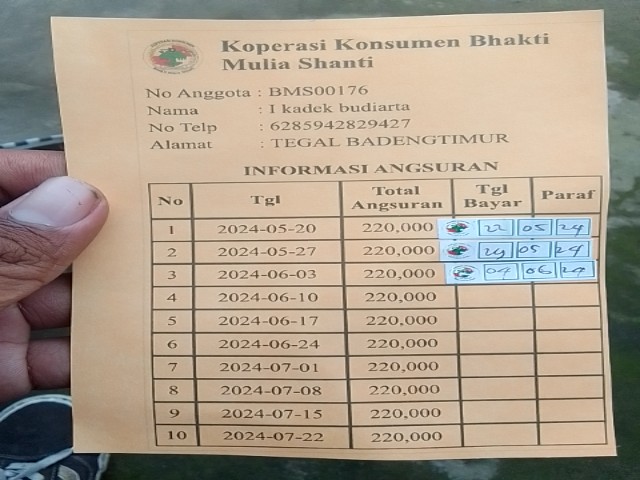 Koperasi Konsumen Bhakti
Mulia Shanti
No Anggota : BMS00176
Nama : I kadek budiarta
No Telp : 6285942829427
Alamat : TEGAL BADENGTIMUR
INFORMASI ANGSURAN
No Tgl Total Angsuran Tgl Bayar Paraf
1 2024-05-20 220,000 22 05 24
2 2024-05-27 220,000 05 24
3 2024-06-03 220,000 04 06 24
4 2024-06-10 220,000
5 2024-06-17 220,000
6 2024-06-24 220,000
7 2024-07-01 220,000
8 2024-07-08 220,000
9 2024-07-15 220,000
10 2024-07-22 220,000